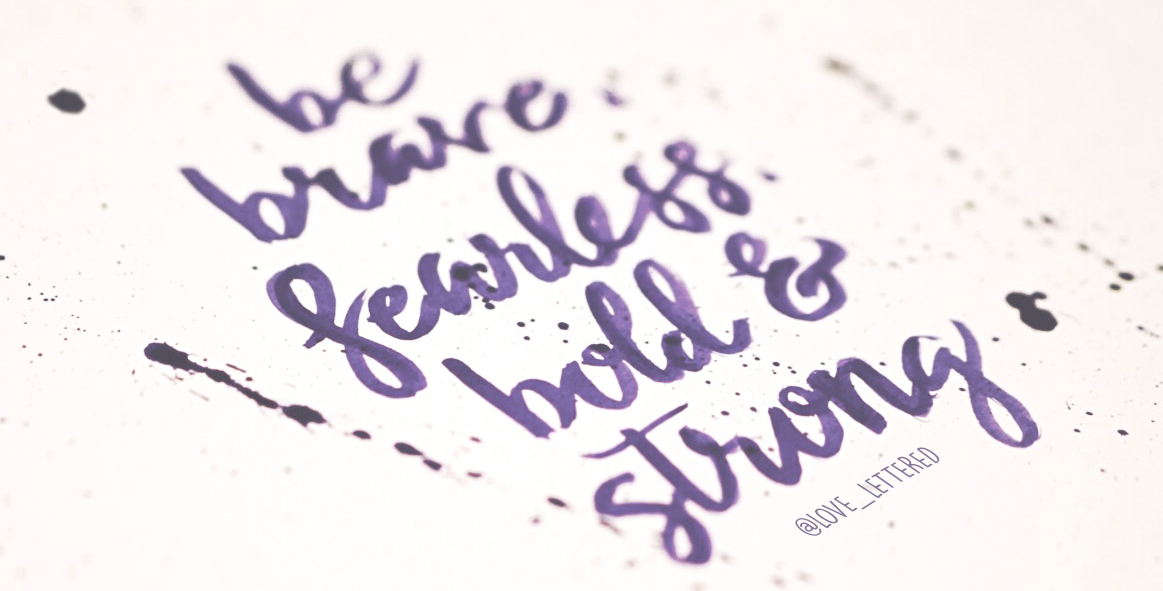 be
brave.
fearless.
bold &
strong
@LOVE_LETTERED